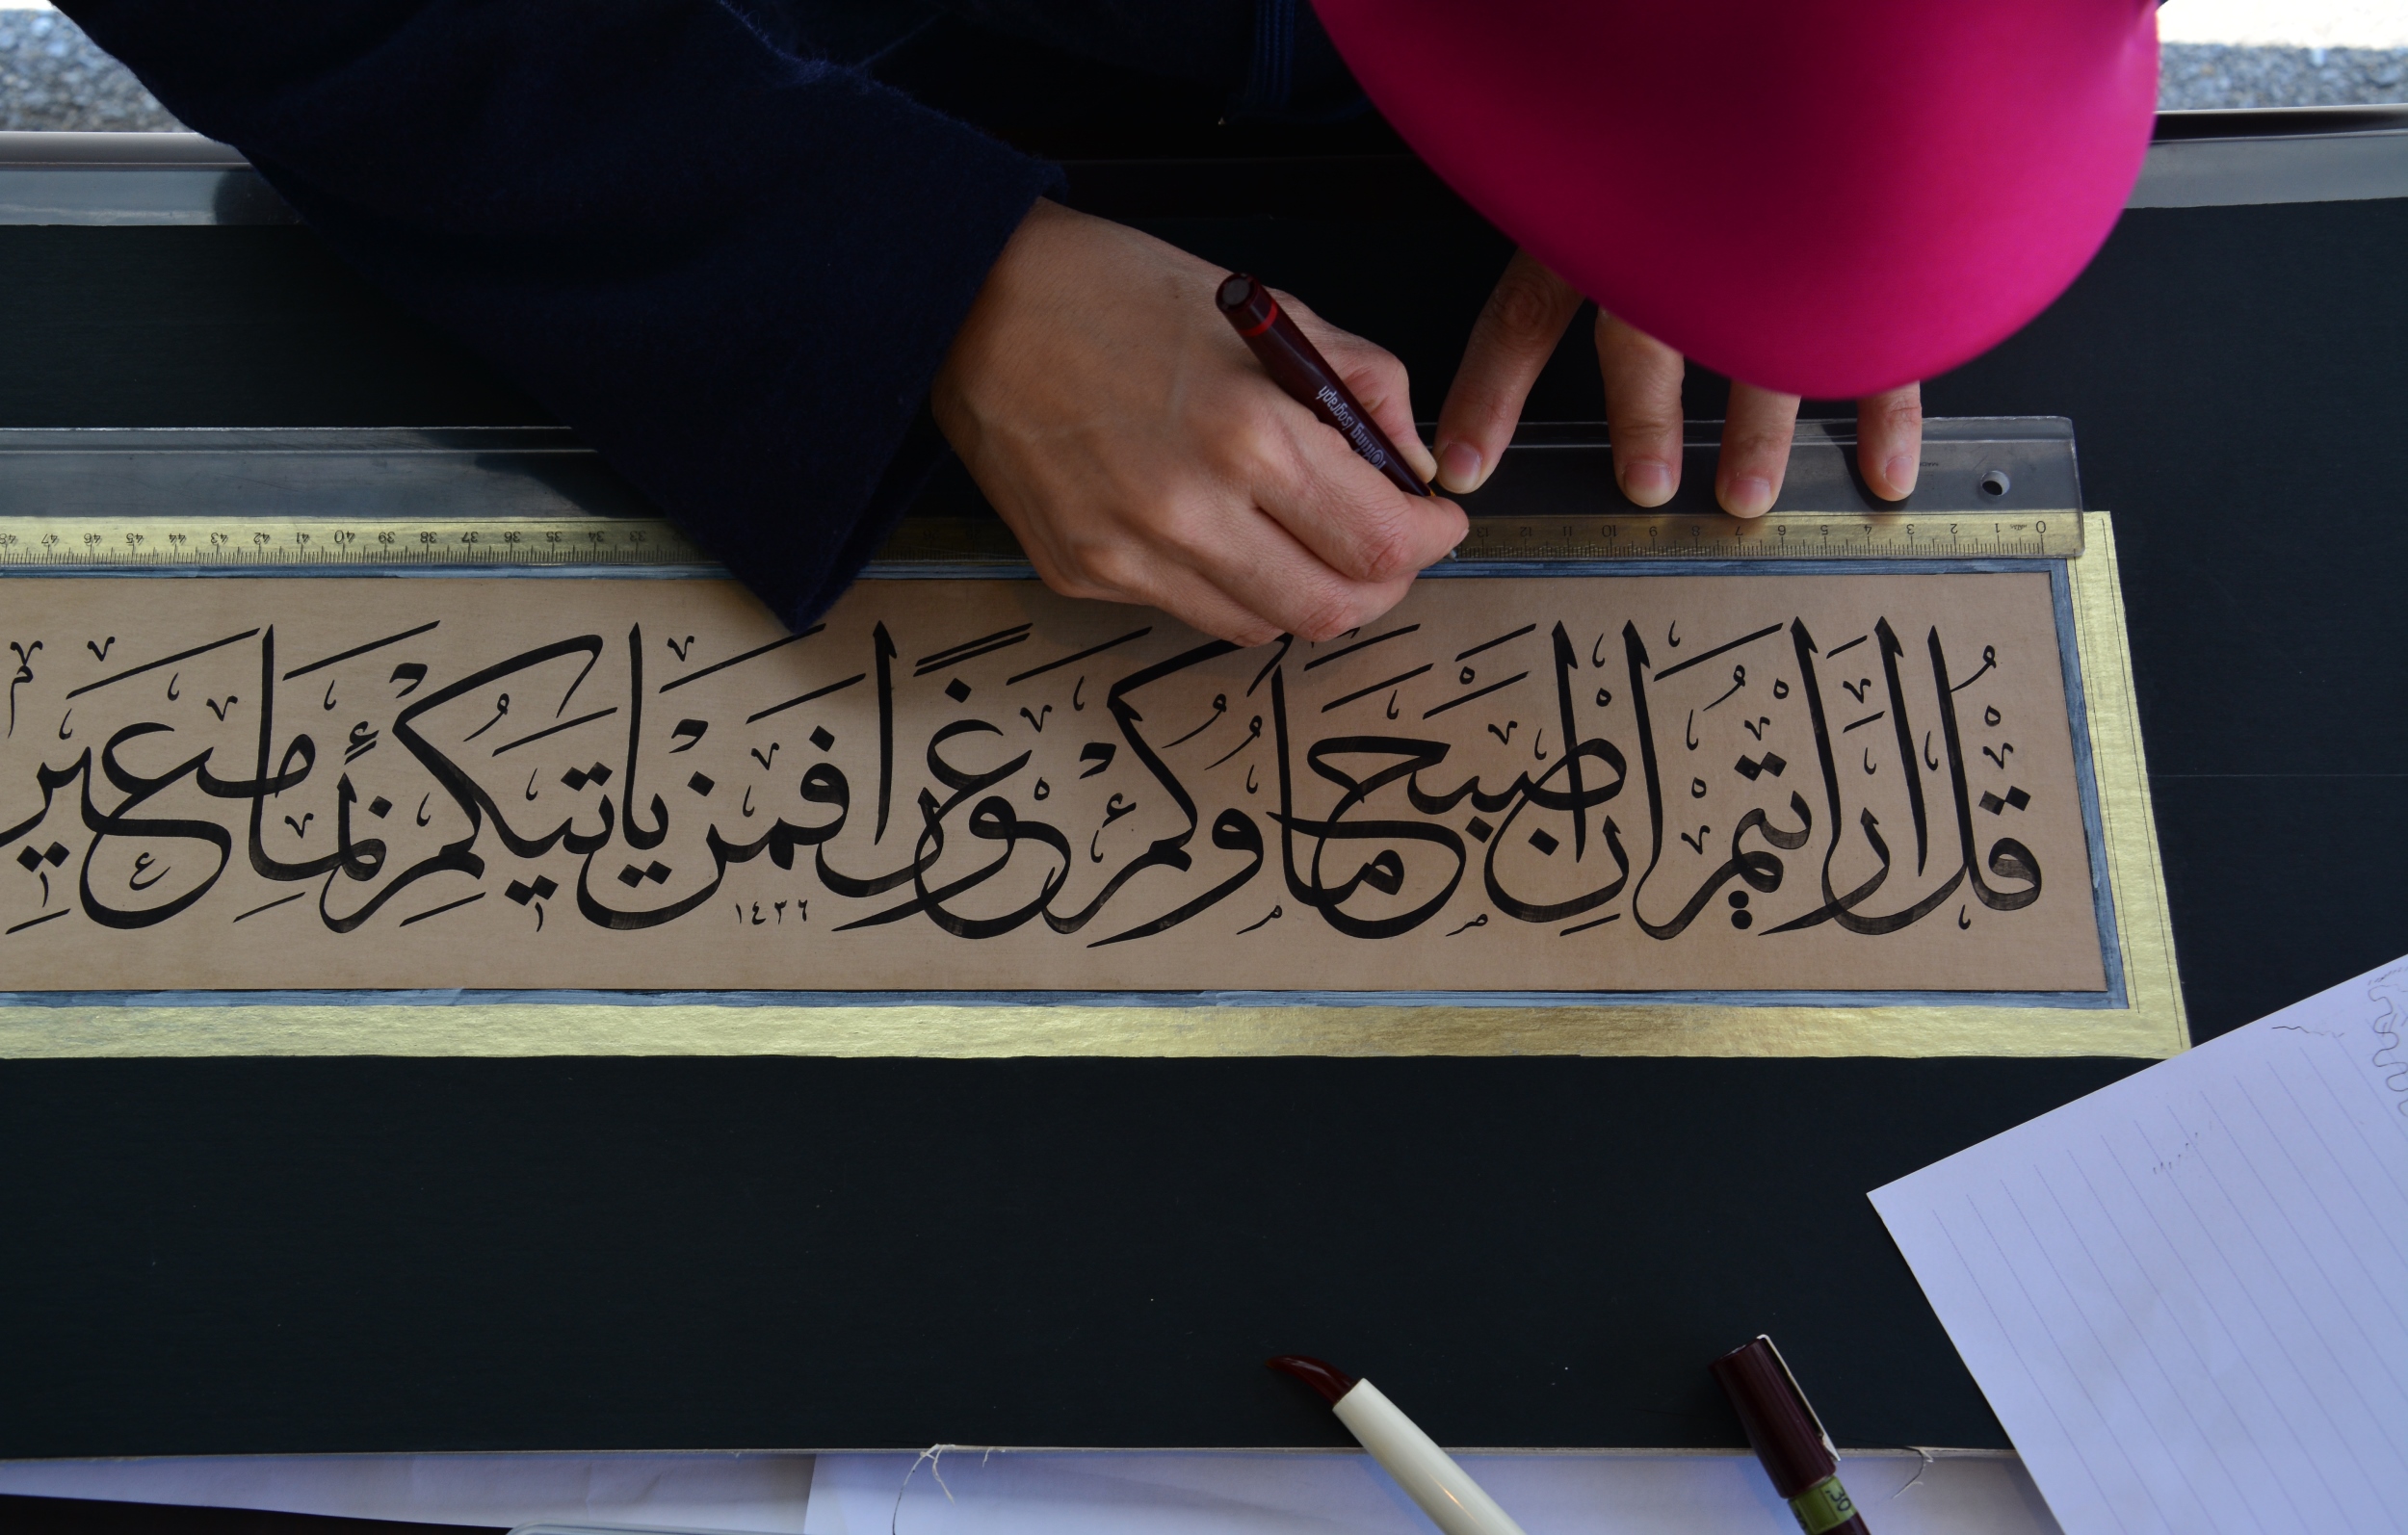 قُلْ اَرَاَيْتُمْ اِنْ اَصْبَحَ مَاؤُكُمْ غَوْرًا فَمَنْ يَاْتِيكُمْ بِمَاءٍ مَعِينٍ
١٤٣٦
rotring isograph
0 1 2 3 4 5 6 7 8 9 10 11 12 13 33 34 35 36 37 38 39 40 41 42 43 44 45 46 47 48
.30